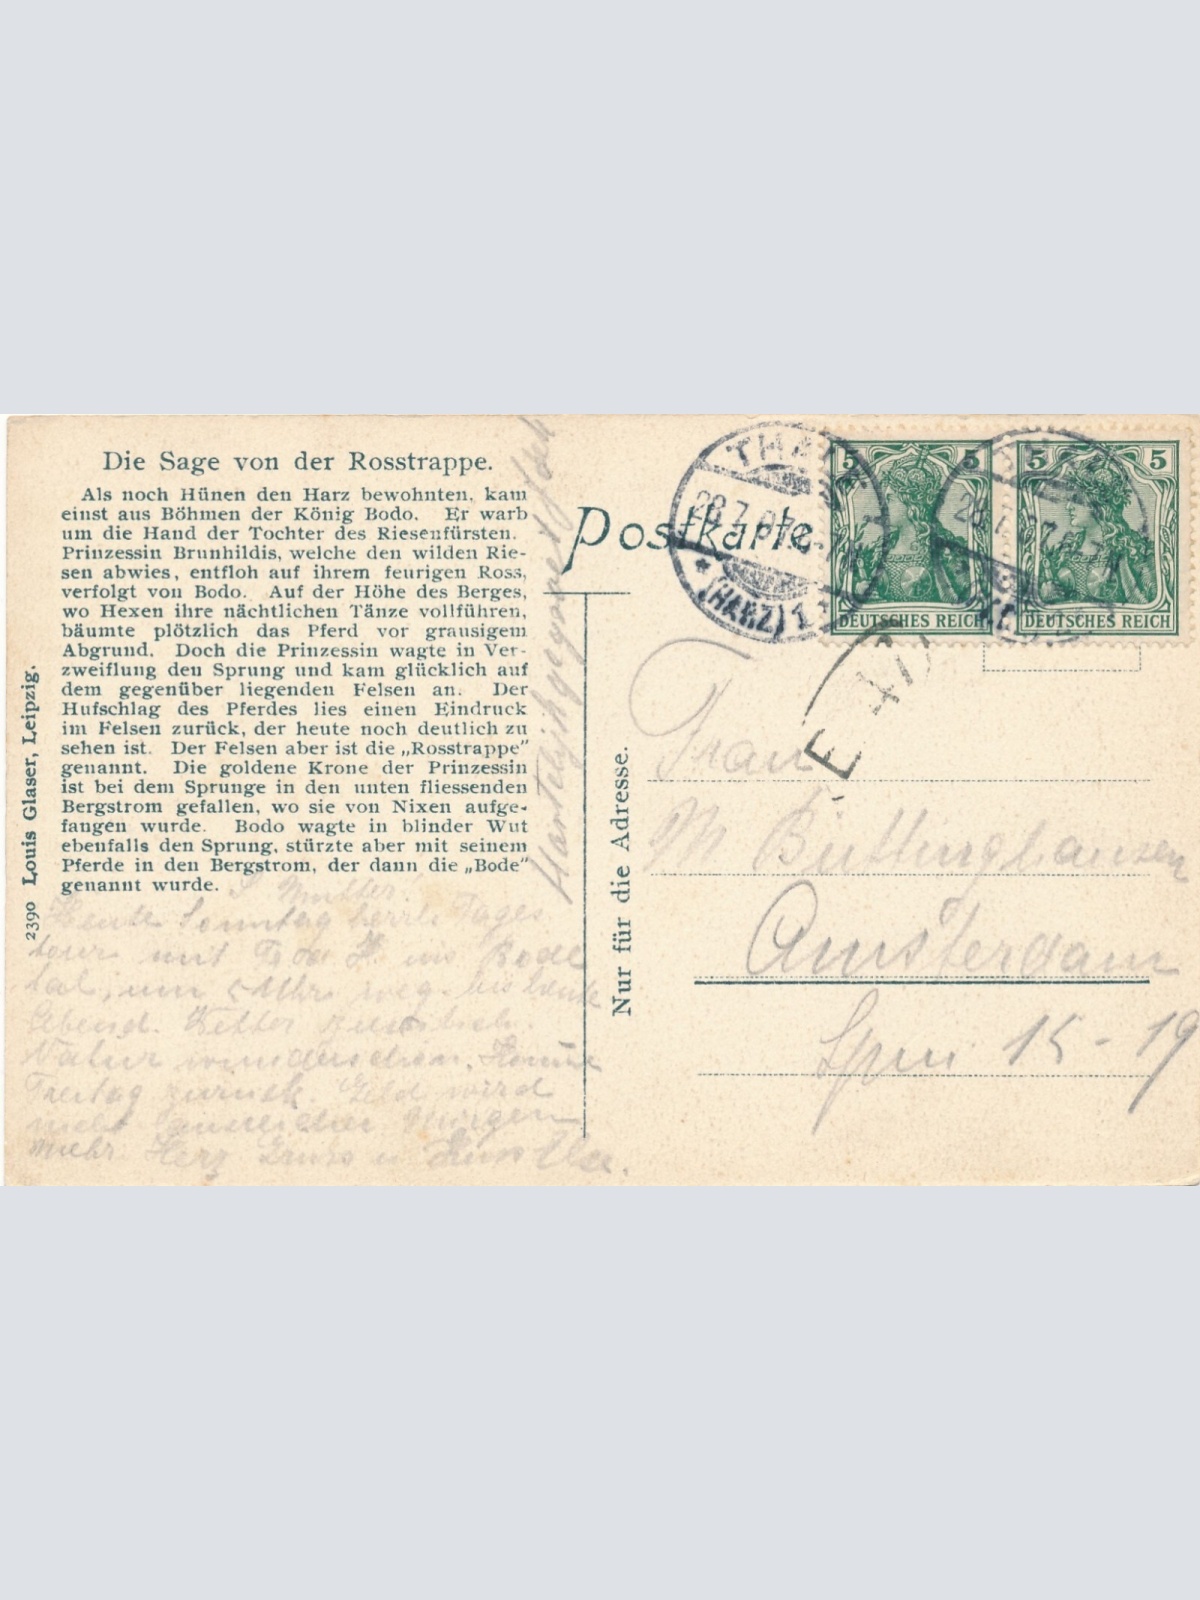 Die Sage von der Rosstrappe.
Als noch Hünen den Harz bewohnten, kam
einst aus Böhmen der König Bodo. Er warb
um die Hand der Tochter des Riesenfürsten.
Prinzessin Brunhildis, welche den wilden Rie-
sen abwies, entfloh auf ihrem feurigen Ross,
verfolgt von Bodo. Auf der Höhe des Berges,
wo Hexen ihre nächtlichen Tänze vollführen,
bäumte plötzlich das Pferd vor grausigem
Abgrund. Doch die Prinzessin wagte in Ver-
zweiflung den Sprung und kam glücklich auf
dem gegenüber liegenden Felsen an. Der
Hufschlag des Pferdes lies einen Eindruck
im Felsen zurück, der heute noch deutlich zu
sehen ist. Der Felsen aber ist die „Rosstrappe"
genannt. Die goldene Krone der Prinzessin
ist bei dem Sprunge in den unten fliessenden
Bergstrom gefallen, wo sie von Nixen aufge-
fangen wurde. Bodo wagte in blinder Wut
ebenfalls den Sprung, stürzte aber mit seinem
Pferde in den Bergstrom, der dann die „Bode"
genannt wurde.
2390 Louis Glaser, Leipzig.
Mutter!
Heute Sonntag herrl. Tages
tour mit
tal, um 5 Uhr weg - bis
Abend. Wetter
Natur wunderschön. Komme
Freitag zurück. Geld wird
Morgen
mehr. Herz
Postkarte
Nur für die Adresse.
THALE
28.7.07.
(HARZ) 1
5 5
DEUTSCHES REICH
5 5
DEUTSCHES REICH
E 47
Frau
M Büttinghausen
Amsterdam
Spui 15-19